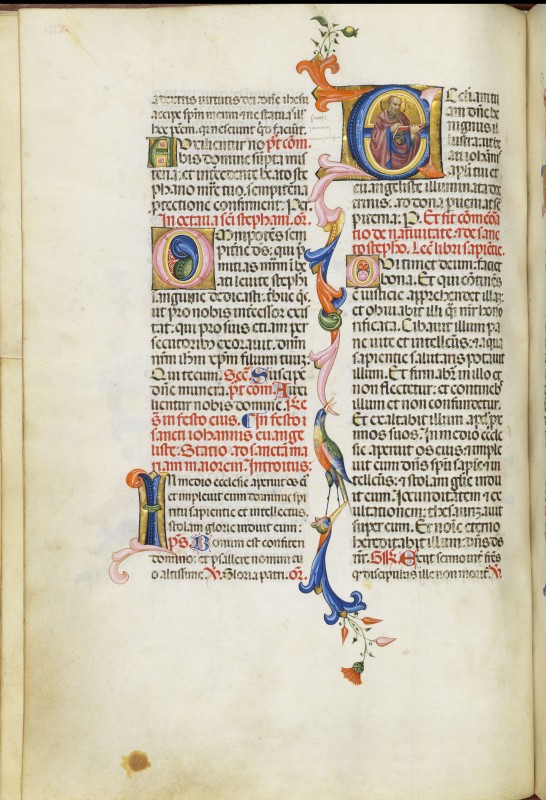 a dextris virtutis dei. dñe ihesu
accipe spm meum: ne statuas ill'
hoc pctm. quia nesciunt qd faciũt.
Auxilientur no pꝰt com̃.
bis domine sumpta mis
teria: et intercedente beato ste
phano mr̃e tuo, sempiterna
protectione confirment. Per.
In octava sc̃i stephani. or̃.
Omnipotens sem
piterne ds̃: qui p
mitias mr̃m ĩ be
ati levite stephi
sanguine dedicasti: tribue q̃s
ut pro nobis intercessor exis
tat. qui pro suis etiam per
secutoribus exoravit. dom
num nr̃m ihm xp̃m filium tuum.
Qui tecum. Scr̃. Suscipe
dñe munera. pꝰt com. Auxi
lientur nobis domine. Re
qs̃ in festo eius. In festo s
sancti iohannis euange
liste. Statio ad sanctã ma
riam maiorem. Introitus.
In medio ecclesie aperuit os ei
et implevit eum dominus spi
ritu sapientie et intellectus.
stolam glorie induit eum:
ps̃. Bonum est confiteri
domino: et psallere nomini tu
o altissime. V̄. Gloria patri. or̃.
Ecclesiam tu
am dñe be
nignus il
lustra: ut be
ati iohanis
apl̃i tui et
euangeliste illuminata doc
trinis: ad dona perveniat sem
piterna: P. Et fit com̃eo
tio de nativitate. et de sanc
to stepho. Lcc̃. libri sapiẽtie.
Qui timet deum: faciet
bona. Et qui contines
e iusticie apprehendet illaz:
et obviabit illi q̃si mr̃ hono
rificata. Cibavit illum pa
ne vite et intellectus: et aqua
sapientie salutaris potavit
illum. Et firmabit̃ in illo et
non flectetur: et continebit
illum et non confundetur.
Et exaltabit illum apud pro
ximos suos. In medio eccle
sie aperuit os eius: et imple
vit eum dñs spũ sapie et in
tellectus: et stolam glorie indu
it eum. Iocunditatem et ex
ultationem: thesaurizavit
super eum. Et noĩe eterno
hereditabit illum: dñs ds̃
nr̃. Gr̃. Exiit sermo int̃ fr̃es
qꝰ discipulus ille non morit̃. V̄.